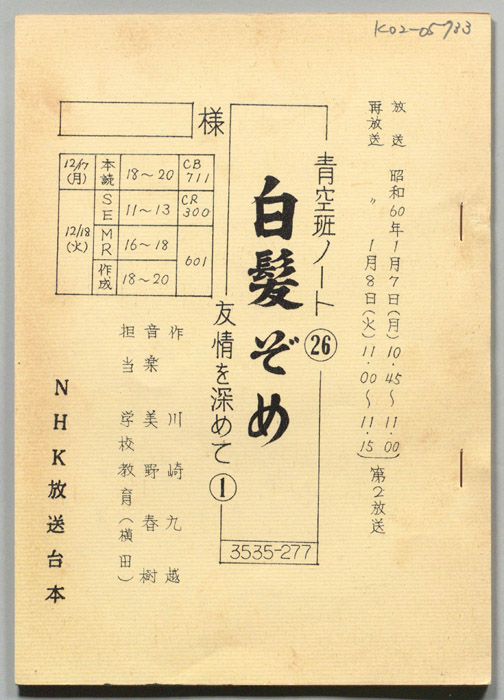 K02-05733
放送 昭和60年1月7日(月)10.45〜11.00
再放送 〃 1月8日(火)11.00〜11.15
第2放送
青空班ノート㉖
白髪ぞめ
友情を深めて①
3535-277
様
12/17(月) 本読 18〜20 CB711
12/18(火) SE 11〜13 CR300
MR 16〜18 601
作成 18〜20
作 川崎九越
音楽 美野春樹
担当 学校教育(横田)
NHK放送台本